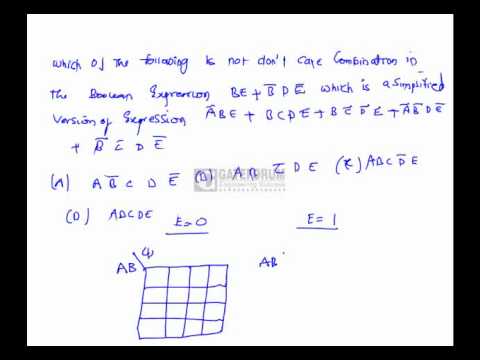 which of the following is not don't care Combination in
the Boolean Expression BE + B̅ D E̅ which is a simplified
Version of Expression A̅ B E + B C D E + B C̅ D̅ E + A̅ B̅ D E̅
+ B̅ C̅ D E̅
(A) A B̅ C D E̅ (B) A B C̅ D E (C) A B C D̅ E
GATEFORUM
Engineering Success
(D) A B C D E E = 0 E = 1
AB AB